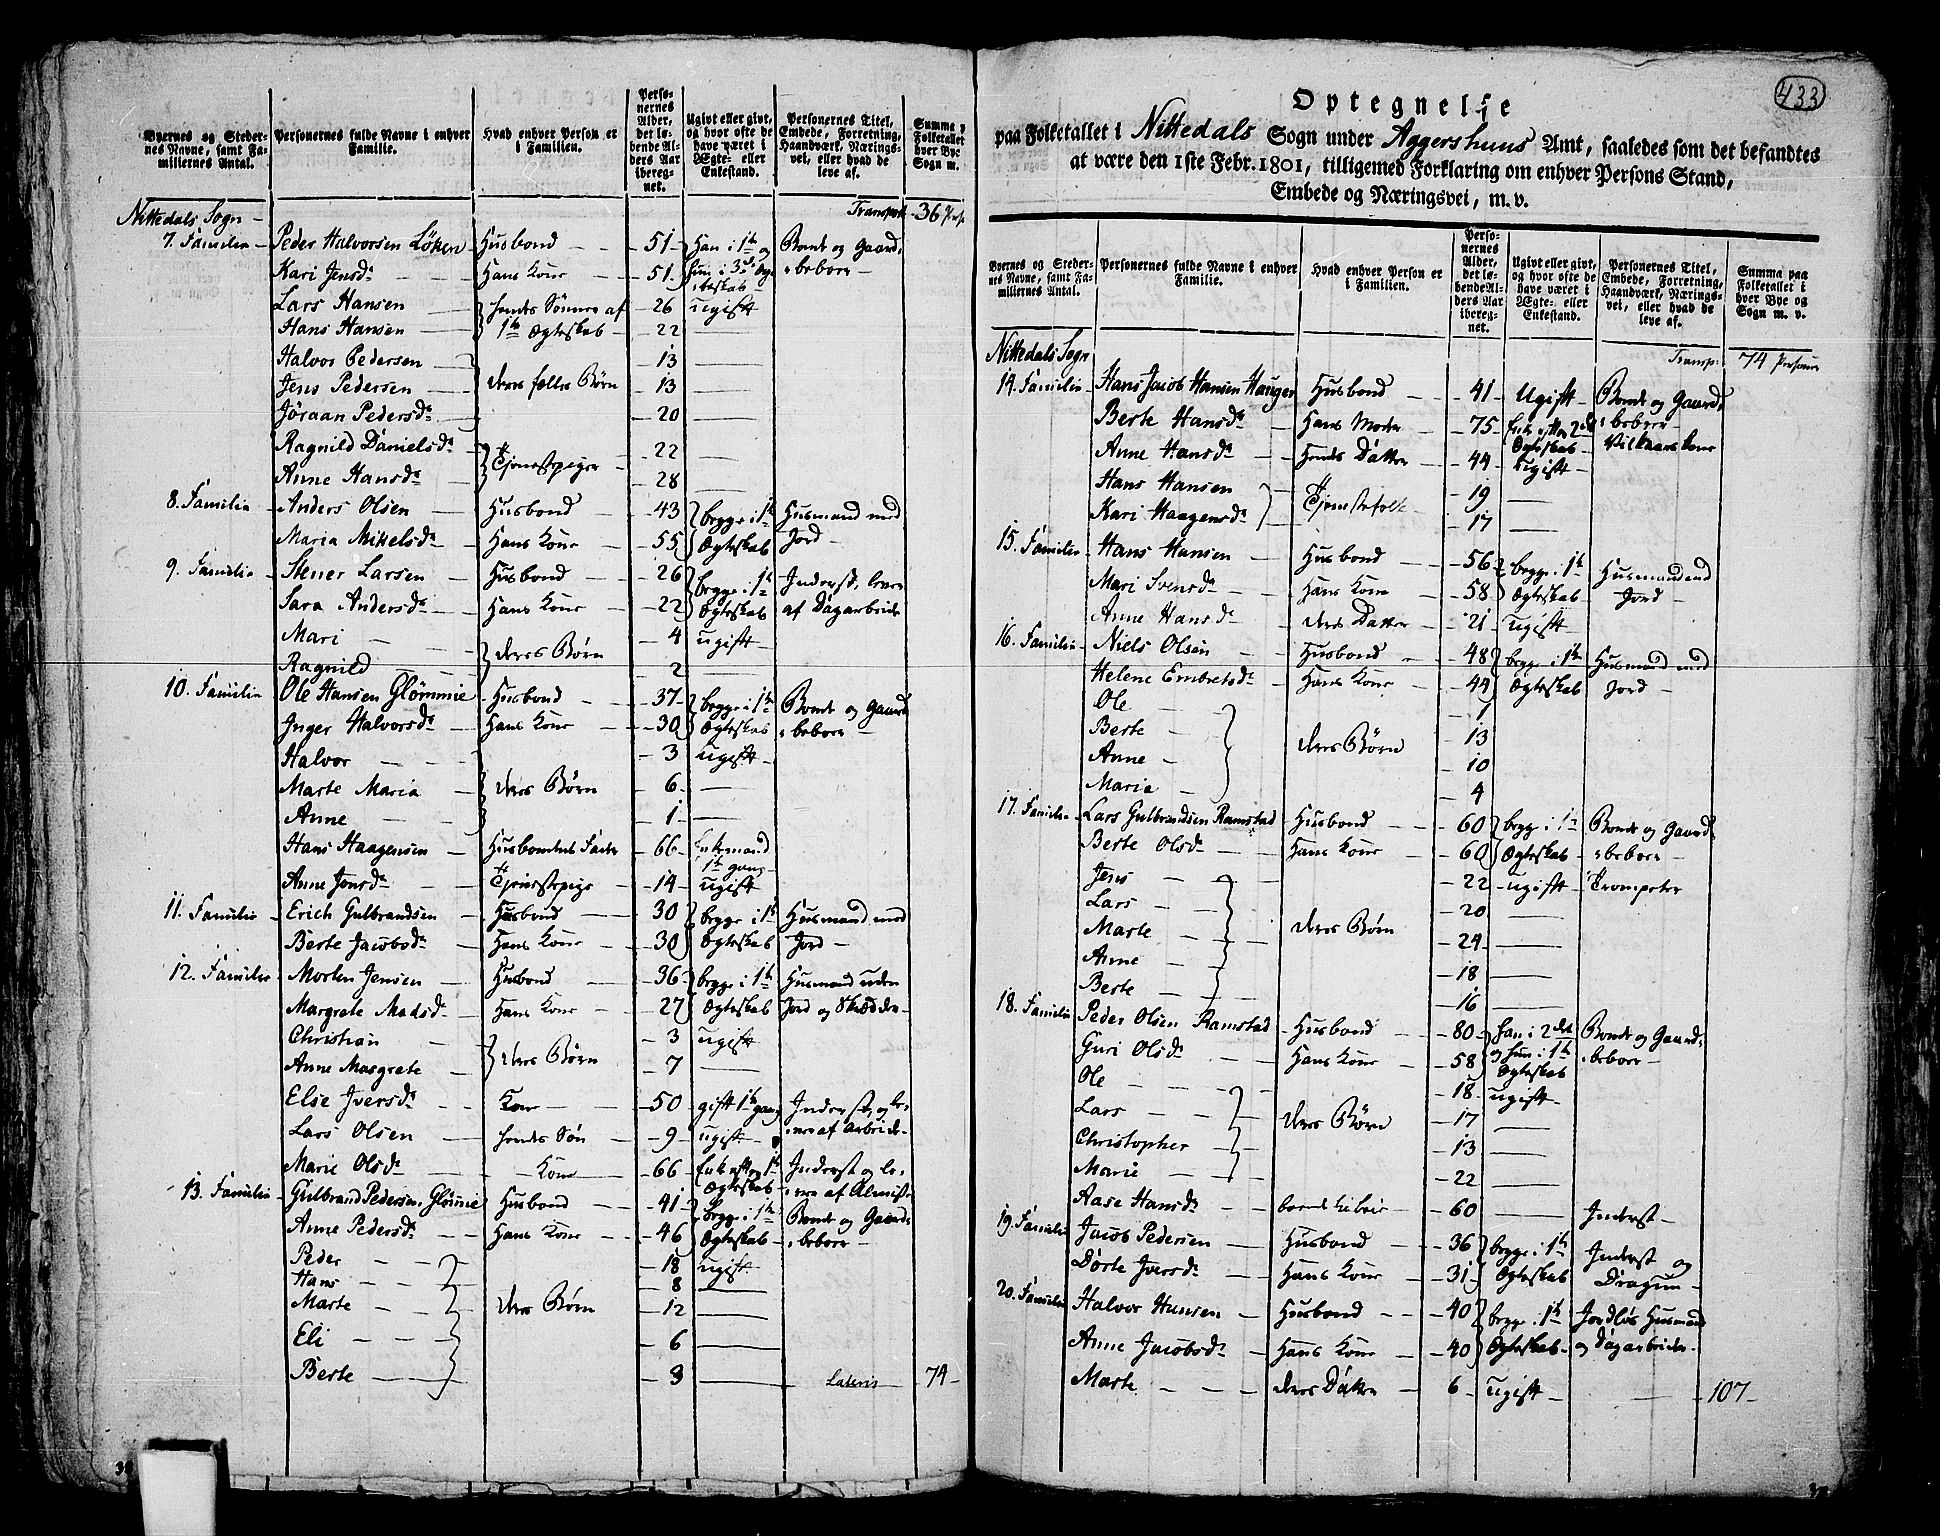 Byernes og Stedernes Navne, samt Familiernes Antal.
Personernes fulde Navne i enhver Familie.
Hvad enhver Person er i Familien.
Personernes Alder, det løbende Alders Aar iberegnet.
Ugivt eller givt, og hvor ofte de have været i Ægte- eller Enkestand.
Personernes Titel, Embede, Forretning, Haandværk, Næringsvei, eller hvad de leve af.
Nittedals Sogn - Transport 36 Pers
7. Familie Peder Halvorsen Löken Husbond 51 Han i 1te og Bonde og Gaard-
Kari Jensdr Hans Kone 51 hun i 3de Ægteskab beboer
Lars Hansen hendes Sönner af 26 ugift
Hans Hansen 1te Ægteskab 22
Halvor Pedersen 13
Jens Pedersen deres fælles Börn 13
Jöraan Pedersdr 20
Ragnild Danielsdr Tjenestepiger 22
Anne Hansdr 28
8. Familie Anders Olsen Husbond 43 begge i 1te Husmand med
Maria Mikkelsdr Hans Kone 55 Ægteskab Jord
9. Familie Stener Larsen Husbond 26 begge i 1te Inderst, lever
Sara Andersdr Hans Kone 22 Ægteskab af Dagarbeide
Mari deres Börn 4 ugift
Ragnild 2
10. Familie Ole Hansen Glömmie Husbond 37 begge i 1te Bonde og Gaard
Inger Halvorsdr Hans Kone 30 Ægteskab beboer
Halvor 3 ugift
Marte Maria deres Börn 6
Anne 1
Hans Haagensen Husbondens Fader 66 Enkemand 1te gang
Anne Jonsdr Tjenestepige 14 ugift
11. Familie Erich Gulbrandsen Husbond 30 begge i 1te Husmand med
Berte Jacobsdr Hans Kone 30 Ægteskab Jord
12. Familie Morten Jensen Husbond 36 begge i 1te Husmand uden
Margrete Madsdr Hans Kone 27 Ægteskab Jord og Skrædder
Christian 3 ugift
Anne Margrete deres Börn 7
Else Iversdr Kone 50 gift 1te gang Inderst, og le-
Lars Olsen hendes Sön 9 ugift ver af Arbeide
Marie Olsdr Kone 66 Enke efter 1te Ægteskab Inderst og lever af Almisse
13. Familie Gulbrand Pedersen Glömmie Husbond 41 begge i 1te Bonde og Gaard-
Anne Pedersdr Hans Kone 46 Ægteskab beboer
Peder 18 ugift
Hans 8
Marte deres Börn 12
Eli 6
Berte 3 Lateris 74
433
Optegnelse
paa Folketallet i Nittedals Sogn under Aggershuus Amt, saaledes som det befandtes
at være den 1ste Febr. 1801, tilligemed Forklaring om enhver Persons Stand,
Embede og Næringsvei, m. v.
Byernes og Stedernes Navne, samt Familiernes Antal.
Personernes fulde Navne i enhver Familie.
Hvad enhver Person er i Familien.
Personernes Alder, det løbende Alders Aar iberegnet.
Ugivt eller givt, og hvor ofte de have været i Ægte- eller Enkestand.
Personernes Titel, Embede, Forretning, Haandværk, Næringsvei, eller hvad de leve af.
Summa paa Folketallet i hver Bye og Sogn m. v.
Nittedals Sogn Transp: 74 Personer
14. Familie Hans Jacob Hansen Hauger Husbond 41 Ugift Bonde og Gaard-
Berte Hansdr Hans Moder 75 Enke efter 2det Ægteskab beboer Vilkaarskone
Anne Hansdr Hendes Datter 44 ugift
Hans Hansen Tjenestefolk 19
Kari Haagensdr 17
15. Familie Hans Hansen Husbond 56 begge i 1te Husmand med
Mari Svensdr Hans Kone 58 Ægteskab Jord
Anne Hansdr deres Datter 21 ugift
16. Familie Niels Olsen Husbond 48 begge i 1te Husmand med
Helene Embretsdr Hans Kone 44 Ægteskab Jord
Ole 1
Berte deres Börn 13
Anne 10
Maria 4
17. Familie Lars Gulbrandsen Ramstad Husbond 60 begge i 1te Bonde og Gaard
Berte Olsdr Hans Kone 60 Ægteskab beboer
Jens 22 ugift Trompeter
Lars 20
Marte deres Börn 24
Anne 18
Berte 16
18. Familie Peder Olsen Ramstad Husbond 80 han i 2det Bonde og Gaard-
Guri Olsdr Hans Kone 58 og hun i 1te Ægteskab beboer
Ole 18 ugift
Lars deres Börn 17
Christopher 13
Marie 22
Aase Hansdr 60 Inderst
19. Familie Jacob Pedersen Husbond 36 begge i 1te Inderst og
Dorte Iversdr Hans Kone 31 Ægteskab Dragun
20. Familie Halvor Hansen Husbond 40 begge i 1te Jordlös Husmand
Anne Jacobsdr Hans Kone 40 Ægteskab og Dagarbeider
Marte deres Datter 6 ugift 107